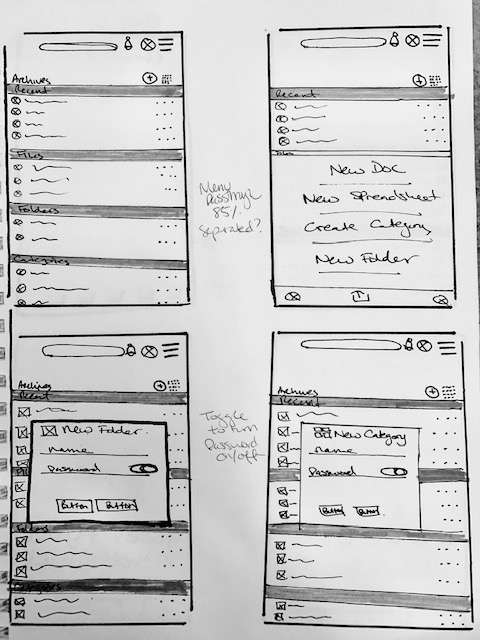 Archives
Recent
Files
Folders
Categories
Recent
Files
New Doc
New Spreadsheet
Create Category
New Folder
Menu
85%
seprated?
Archives
Recent
New Folder
name
password
Button
Button
Folders
Categories
Toggle
to turn
Password
on/off
Archives
Recent
New Category
name
Password
Button
Button